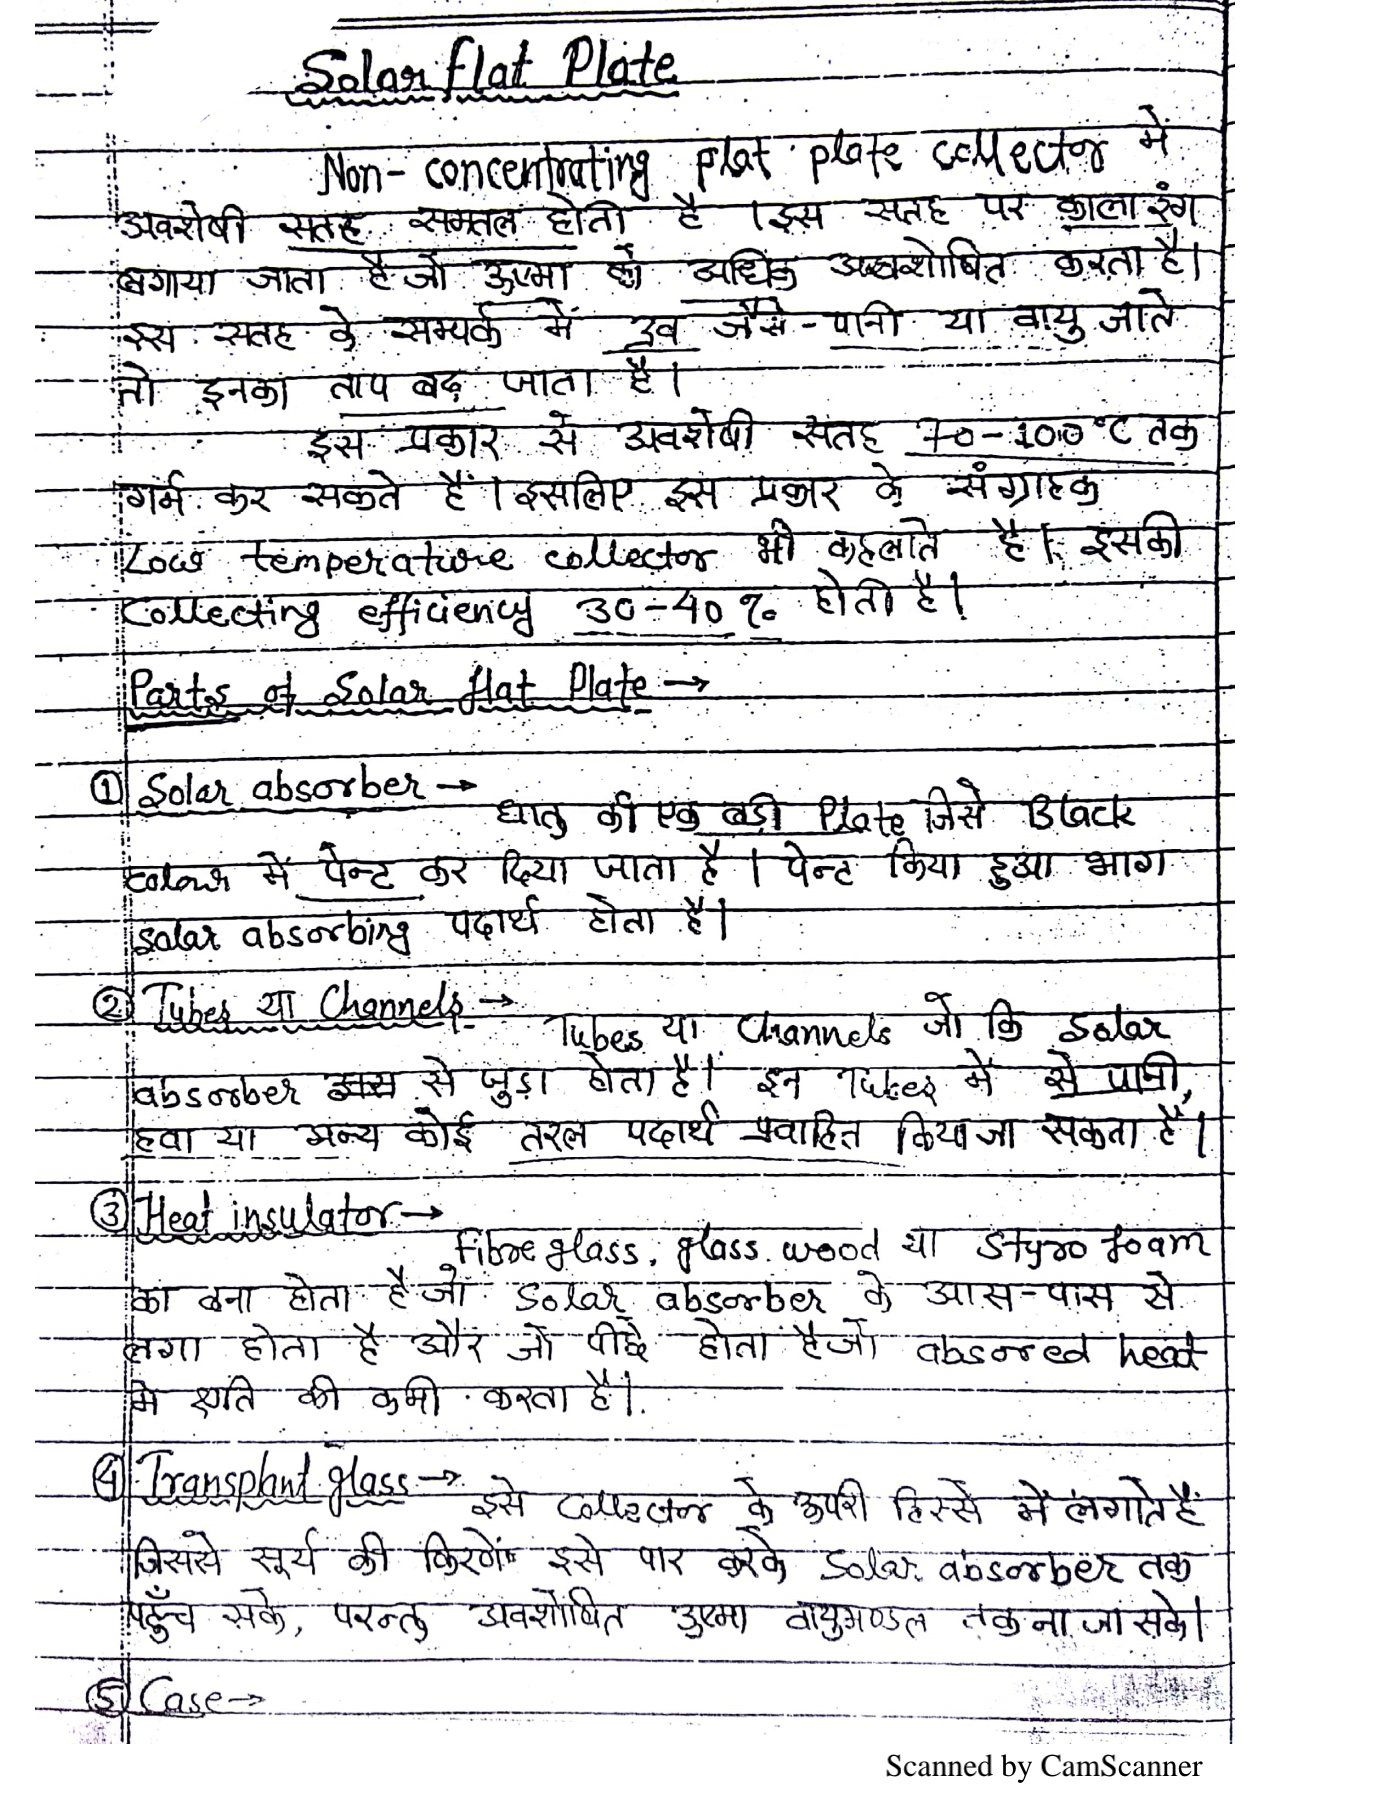 Solar flat Plate
Non-concentrating plat plate collector में
अवशेषी सतह समतल होती है । इस सतह पर काला रंग
लगाया जाता है जो ऊष्मा को अधिक अवशोषित करता है।
इस सतह के सम्पर्क में द्रव जैसे-पानी या वायु जाते
तो इनका ताप बढ़ जाता है।
इस प्रकार से अवशेषी सतह 70-100°C तक
गर्म कर सकते हैं । इसलिए इस प्रकार के संग्राहक
Low temperature collector भी कहलाते है। इसकी
Collecting efficiency 30-40% होती है।
Parts of Solar flat Plate →
① Solar absorber →
धातु की एक बडी Plate जिसे Black
colour में पेन्ट कर दिया जाता है । पेन्ट किया हुआ भाग
solar absorbing पदार्थ होता है।
② Tubes या Channels →
Tubes या Channels जो कि Solar
absorber से जुड़ा होता है। इन Tubes में से पानी,
हवा या अन्य कोई तरल पदार्थ प्रवाहित किया जा सकता है।
③ Heat insulator →
fibre glass, glass wood या Styro foam
का बना होता है जो Solar absorber के आस-पास से
लगा होता है और जो पीछे होता है जो absored heat
मे क्षति की कमी करता है।
④ Transplant glass →
इसे Collector के ऊपरी हिस्से में लगाते हैं
जिससे सूर्य की किरणें इसे पार करके Solar absorber तक
पहुँच सके, परन्तु अवशोषित उष्मा वायुमण्डल तक ना जा सके।
⑤ Case →
Scanned by CamScanner